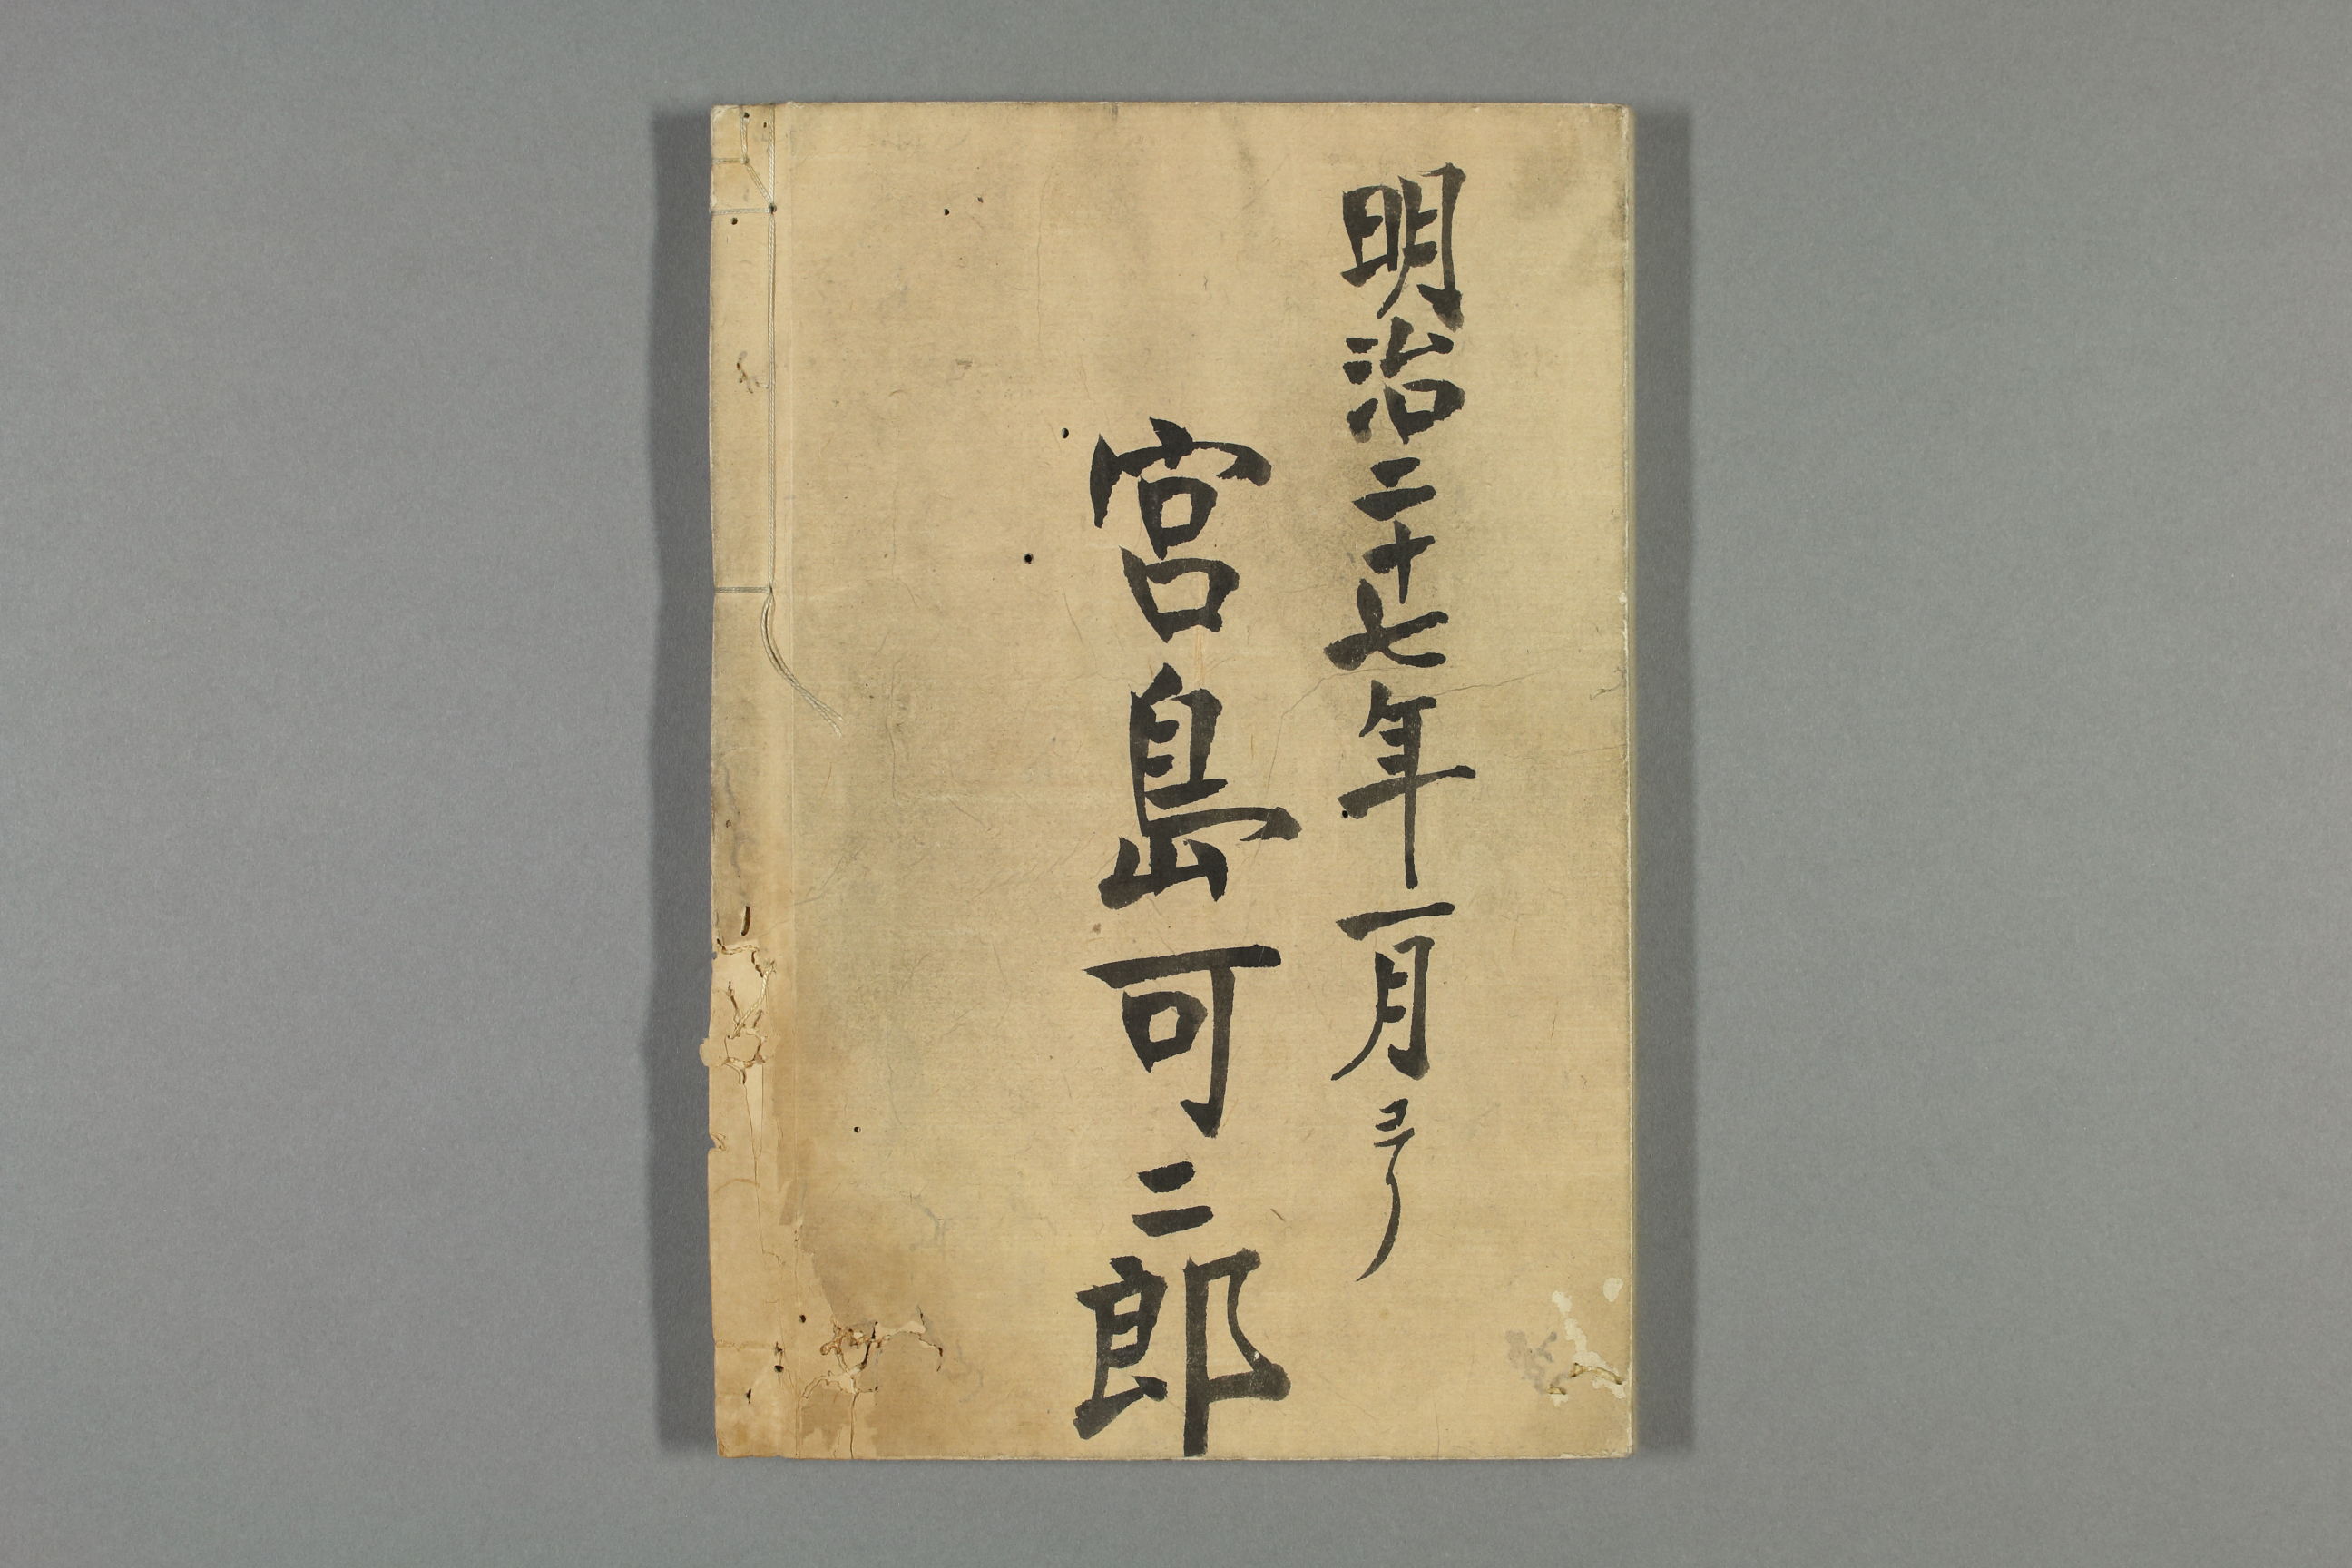 明治二十七年一月ヨリ
宮島可二郎